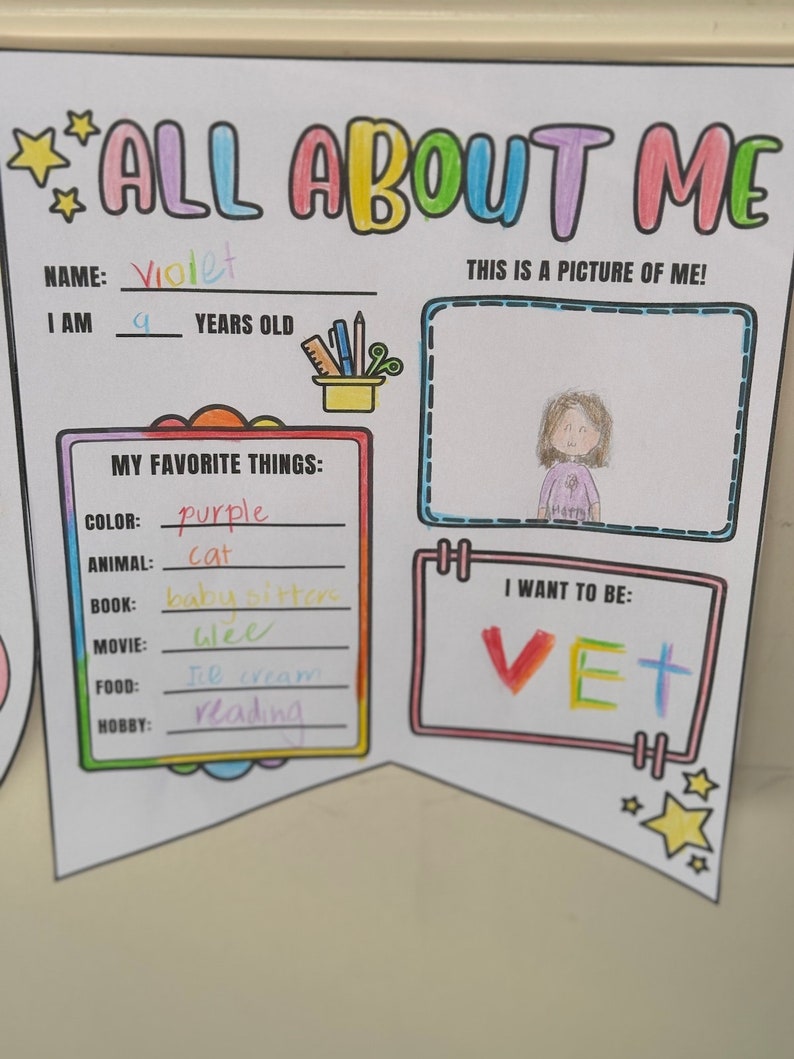 ALL ABOUT ME
NAME: Violet
I AM 9 YEARS OLD
MY FAVORITE THINGS:
COLOR: purple
ANIMAL: cat
BOOK: babysitters
MOVIE: Glee
FOOD: Ice cream
HOBBY: reading
THIS IS A PICTURE OF ME!
Happy
I WANT TO BE:
VEt